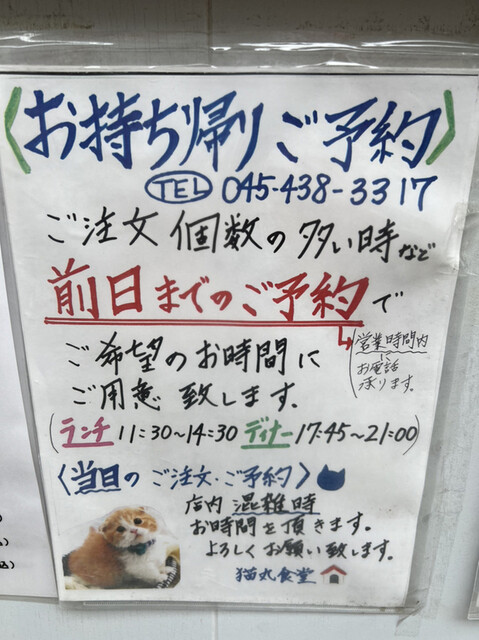 〈お持ち帰りご予約〉
TEL 045-438-3317
ご注文個数の多い時など
前日までのご予約で
営業時間内に
お電話
承ります。
ご希望のお時間に
ご用意致します。
(ランチ 11:30~14:30 ディナー 17:45~21:00)
〈当日のご注文・ご予約〉
店内混雑時
お時間を頂きます。
よろしくお願い致します。
猫丸食堂